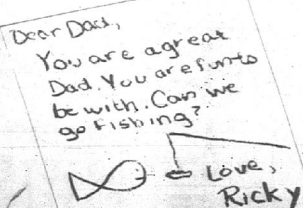 Dear Dad,
You are a great
Dad. You are fun to
be with. Can we
go fishing?
Love,
Ricky